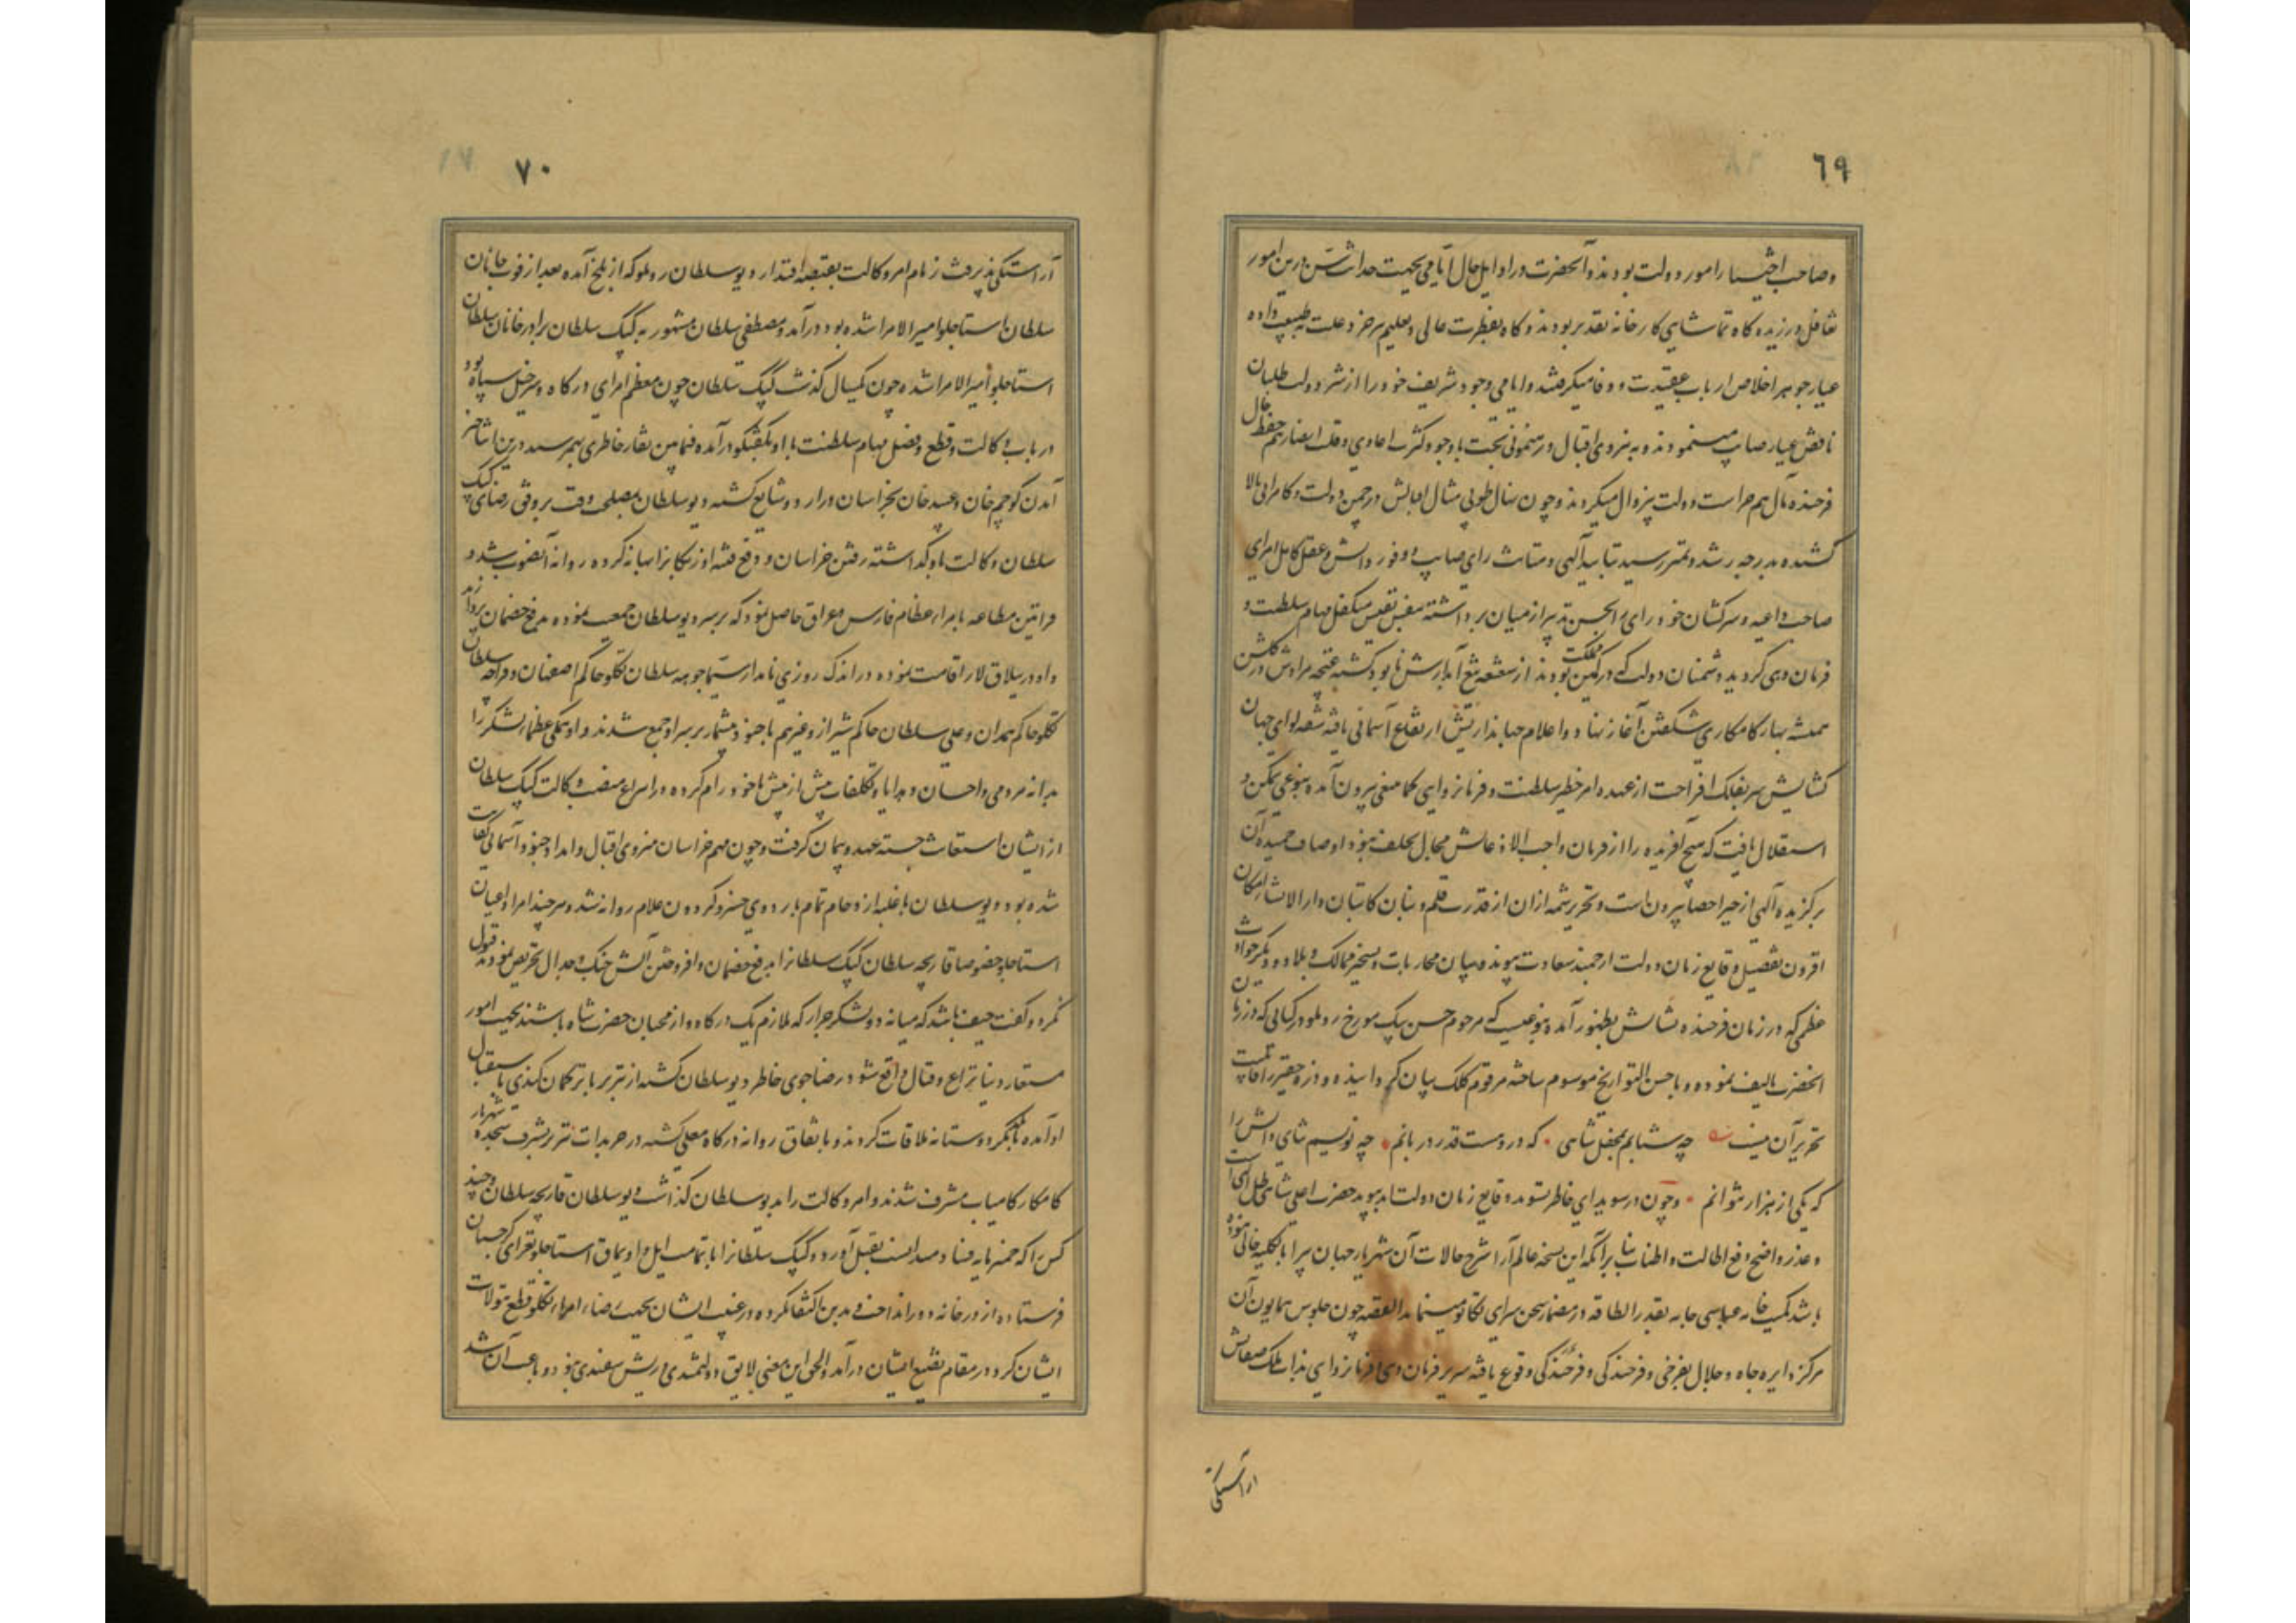 ٦٩
و صاحب اختیار امور دولت بودند و آنحضرت در اوایل حال ایامی بجهت حداثت سن درین امور
تغافل ورزیده گاه تماشای کارخانه تقدیر بودند و گاه بفطرت عالی و تعلیم
عیار جوهر اخلاص ارباب عقیدت و وفا میگرفتند و ایامی وجود شریف خود را از شر دولت طلبان
ناقص عیار صیانت مینمودند و به نیروی اقبال و رهنمونی بخت با وجود کثرت اعادی و قلت انصار هم حفظ حال
فرخنده مآل هم حراست دولت بیزوال میکردند و چون نهال طوبی مثال اقبالش در چمن دولت و کامرانی بالا
کشیده بدرجه رشد و تمیز رسید بتایید الهی و متانت رای صایب و وفور دانش و عقل کامل امرای
صاحب داعیه و سرکشان خود رای را بحسن تدبیر از میان برداشته بنفس نفیس متکفل مهام سلطنت و
فرمان دهی گردید و دشمنان دولت که در کمین مملکت بودند از شعشعه تیغ آبدارش نابود گشته غنچه مرادش در گلشن
همیشه بهار کامکاری شگفتن آغاز نهاد و اعلام جهانداریش ارتفاع آسمانی یافته شقه لوای جهان
گشایش سر بفلک افراخت از عهده امر خطیر سلطنت و فرمانروایی کما ینبغی بیرون آمده بنوعی تمکین و
استقلال یافت که هیچ آفریده را از فرمان واجب الاذعانش مجال تخلف نبود اوصاف حمیده آن
برگزیده الهی از حیز احصا بیرون است و تحریر شمه از آن از قدرت قلم و بنان کاتبان دار الانشاء امکان
افزون تفصیل وقایع زمان دولت ارجمند سعادت پیوند و بیان محاربات و تسخیر ممالک و بلاد و دیگر حوادث
عظمی که در زمان فرخنده نشانش بظهور آمده بنوعیست که مرحوم حسن بیک مورخ روملو در کتابی که در زمان
آنحضرت تالیف نموده و باحسن التواریخ موسوم ساخته مرقوم کلک بیان گردانیده و ذره حقیر را قابلیت
تحریر آن نیست چه شتابم بمحفل شاهی که در دست قدر دربانم چه نویسم ثنای دانش را
که یکی از هزار نتوانم و چون در سویدای خاطر وقایع زمان دولت ابد پیوند حضرت اعلی شاهی ظل الهی است
و عذر واضح رفع اطالت و اطناب بنا بر آنکه این نسخه عالم آرا از شرح حالات آن شهریار جهان پیرا بالکلیه خالی نبوده
باشد کمیت خامه عباسی جامه بقدر الطاقه در مضمار سخن سرای تکاپو مینماید القصه چون جلوس همایون آن
مرکز دایره جاه و جلال بفرخی و فرخندگی وقوع یافته سریر فرمان دهی و فرمانروایی بذات ملک صفاتش
آراستگی
٧٠
آراستگی پذیرفت زمام امر وکالت بقبضه اقتدار دیو سلطان روملو که از بلخ آمده بعد از فوت جایان
سلطان استاجلو امیر الامرا شده بود درآمد و مصطفی سلطان مشهور به کپک سلطان برادر جایان سلطان
استاجلو امیر الامرا شده چون یکسال گذشت کپک سلطان چون معظم امرای درگاه و سرخیل سپاه بود
در باب وکالت و قطع و فصل مهام سلطنت با او بگفتگو درآمده فیمابین نقار خاطری بهم رسید درین اثنا خبر
آمدن کوچم خان و عبید خان بخراسان در اردو شایع گشته دیو سلطان بمصلحت وقت بر وفق رضای کپک
سلطان وکالت باو گذاشته رفتن خراسان و دفع فتنه اوزبکان را بهانه کرده روانه آنصوب شد و
فرامین مطاعه بامراء عظام فارس و عراق حاصل نمود که بر سر دیو سلطان جمعیت نموده بدفع خصمان پردازند
و او در ییلاق لار اقامت نموده در اندک روزی نامدار سیما چوهه سلطان تکلو حاکم اصفهان و قراجه سلطان
تکلو حاکم همدان و علی سلطان حاکم شیراز و غیرهم با جنود بیشمار بر سر او جمع شدند و او همگی عظماء لشکر را
بدانه مردمی و احسان و هدایا و تکلفات بیش از پیش با خود رام کرده در انتزاع منصب وکالت کپک سلطان
از ایشان استعانت جسته عهد و پیمان گرفت و چون مهم خراسان بنیروی اقبال و امداد جنود آسمانی کفایت
شده بود دیو سلطان با غلبه ازدحام تمام باردوی خسرو گردون غلام روانه شد و هر چند امرا و اعیان
استاجلو خصوصا قارنجه سلطان کپک سلطان را بدفع خصمان و افروختن آتش جنگ و جدال تحریص نمودند قبول
نکرد و گفت حیف باشد که میانه دو لشکر جرار که ملازم یک درگاه و از محبان حضرت شاه باشند بجهت امور
مستعار دنیا نزاع و قتال واقع شود رضاجوی خاطر دیو سلطان گشته از تبریز تا ترکمان کندی باستقبال
او آمده با یکدگر دوستانه ملاقات کردند و باتفاق روانه درگاه معلی گشته در چرنداب تبریز بشرف سجده شهریار
کامکار کامیاب مشرف شدند و امر وکالت را بدیو سلطان گذاشت دیو سلطان قارنجه سلطان و چند
کس را که خمیرمایه فساد میدانست بقتل آورد و کپک سلطان را با تمامت ایل و اویماق استاجلو بغزای گرجستان
فرستاده از در خانه دور انداخت و بدین اکتفا نکرده در غیبت ایشان بجهت رضاء امراء تکلو قطع تیولات
ایشان کرد در مقام تضییع ایشان درآمد و الحق این معنی لایق دولتمندی و ریش سفیدی نبود و باعث آن شد